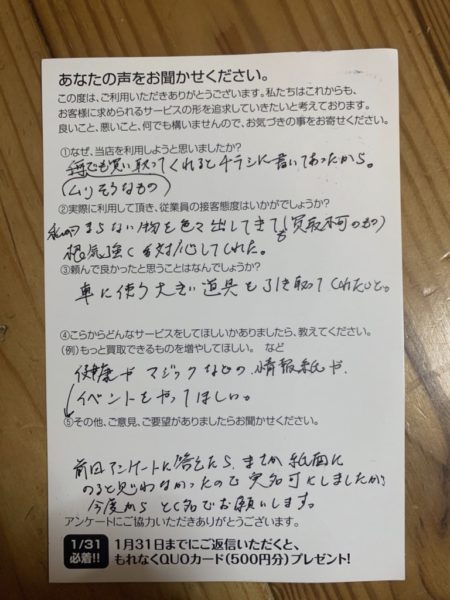 あなたの声をお聞かせください。
この度は、ご利用いただきありがとうございます。私たちはこれからも、
お客様に求められるサービスの形を追求していきたいと考えております。
良いこと、悪いこと、何でも構いませんので、お気づきの事をお寄せください。
①なぜ、当店を利用しようと思いましたか?
何でも買い取ってくれるとチラシに書いてあったから。
(ムリそうなもの)
②実際に利用して頂き、従業員の接客態度はいかがでしょうか?
つまらない物を色々出してきても(買取不可のもの)
根気強く対応してくれた。
③頼んで良かったと思うことはなんでしょうか?
車に使う大きい道具も引き取ってくれたこと。
④こらからどんなサービスをしてほしいかありましたら、教えてください。
(例)もっと買取できるものを増やしてほしい。 など
健康やマジックなどの情報紙や、
イベントをやってほしい。
⑤その他、ご意見、ご要望がありましたらお聞かせください。
前回アンケートに答えたら、まさか紙面に
のると思わなかったので実名可にしましたが、
今度から とく名でお願いします。
アンケートにご協力いただきありがとうございます。
1/31 必着!!
1月31日までにご返信いただくと、
もれなくQUOカード(500円分)プレゼント!